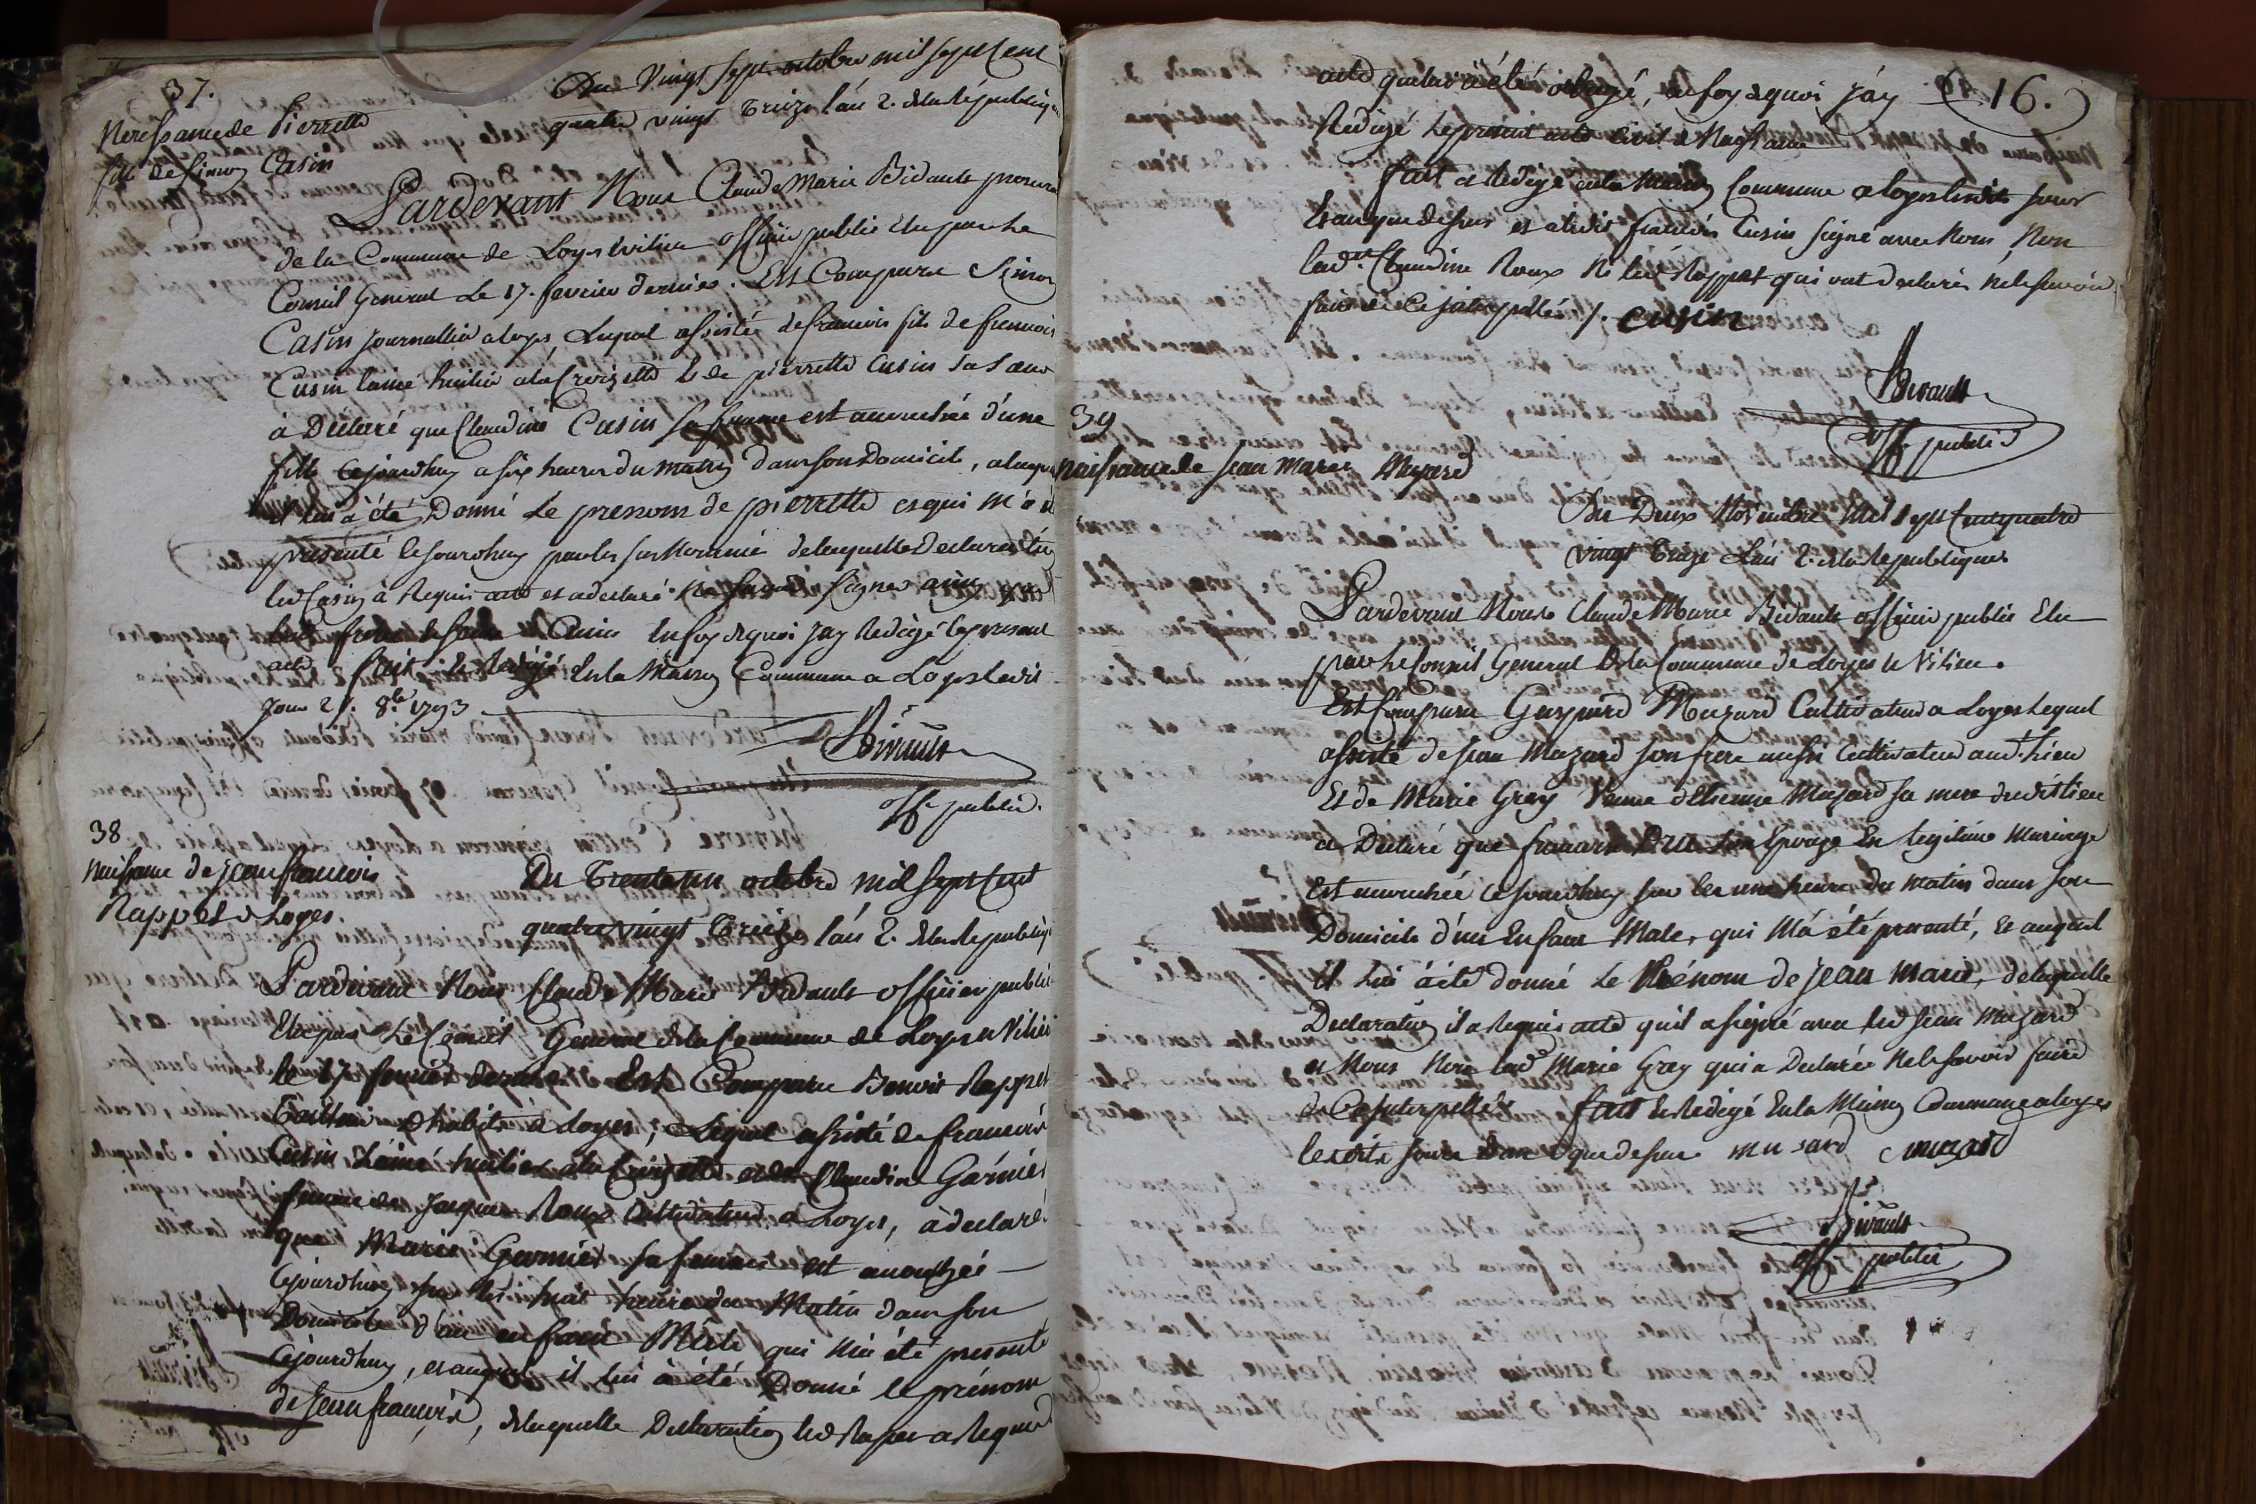 37.
Nessance de Pierrette
fille de Simon Casin
Du Vingt Sept octobre mil Sept Cent
quatre vingt Treize l'an 2. de la République
Pardevant Nous Claude Marie Bidault procureur
de la Commune de Loyes & vilieu officier public Elu par le
Conseil General Le 17. fevrier dernier. Est Comparu Simon
Casin journallier a loyes Lequel assisté de francois fils de francois
Cusin lainé huilier a la Croizette & de pierrette Cusin sa Sœur
à Déclaré que Claudine Casin sa femme est accouchée d'une
fille cejourdhuy a six heures du matin dans son Domicile, a laquelle
il lui à été Donné Le prenom de pierrette et qui m'a été
presenté cejourdhuy par les sus Nommé de laquelle declaration
led Casin à Requis acte et a declaré Ne savoir signer ainsi que
Cusin En foy de quoi jay Redigé le present
acte fait & Redigé En la Maison Commune a Loyes ledit
jour 27. 8bre 1793
Bidault
off. public.
38
Naissance de jean francois
Rappet de Loyes.
Du Trente un octobre mil Sept Cent
quatre vingt Treize l'an 2. de la Republique
Pardevant Nous Claude Marie Bidault officier public
Elu par Le Conseil General de la Commune de Loyes & Vilieu
le 17 fevrier dernier Est Comparu Benoit Rappet
Tailleur d'habits à Loyes, Lequel assisté de francois
Cusin L'ainé huilier a la Croizette et de Claudine Garnier
femme de Jacques Roux Cultivateur a Loyes, à declaré
que Marie Garnier sa femme est accouchée
Cejourdhuy sur les huit heures du Matin dans son
Domicile d'un enfant Mâle qui m'a été presenté
Cejourdhuy, et auquel il lui à été Donné le prénom
de Jean francois, de laquelle Declaration led Rapet a Requis
16.
acte qui lui à été octroyé, en foy de quoi j'ay
Redigé le présent acte Civil de Naissance
fait & Redigé en la Maison Commune a Loyes lesdits jour
Et an que dessus et a ledit francois Cusin signé avec Nous Non
lad.e Claudine Roux Ni led Rappet qui ont declarés Ne le savoir
faire de Ce interpellés /. cusin
Bidault
off public
39
Naissance de Jean Marie Muzard
Du Deux Novembre Mil Sept Cent quatre
vingt Treize L'an 2. de la Republique
Pardevant Nous Claude Marie Bidault officier public Elu
par le Conseil General De la Commune de Loyes & Vilieu.
Est Comparu Gaspard Muzard Cultivateur a Loyes Lequel
assisté de Jean Muzard son frere aussi Cultivateur aud.t Lieu
Et de Marie Grey Veuve d'Etienne Muzard sa mere dudit Lieu
a Declaré que son Epouse En legitime Mariage
Est accouchée Cejourdhuy sur les une heure du Matin dans son
Domicile d'un Enfant Male, qui M'a été presenté, Et auquel
il lui à été donné Le Prénom de Jean Marie, de laquelle
Declaration il a Requis acte qu'il a signé avec led Jean Muzard
et Nous Non lad.e Marie Grey qui a Declarée Ne le savoir faire
de Ce interpellée. fait & Redigé En la Maison Commune a Loyes
lesdits jour & an que dessus mu sard muzard
Bidault
off public